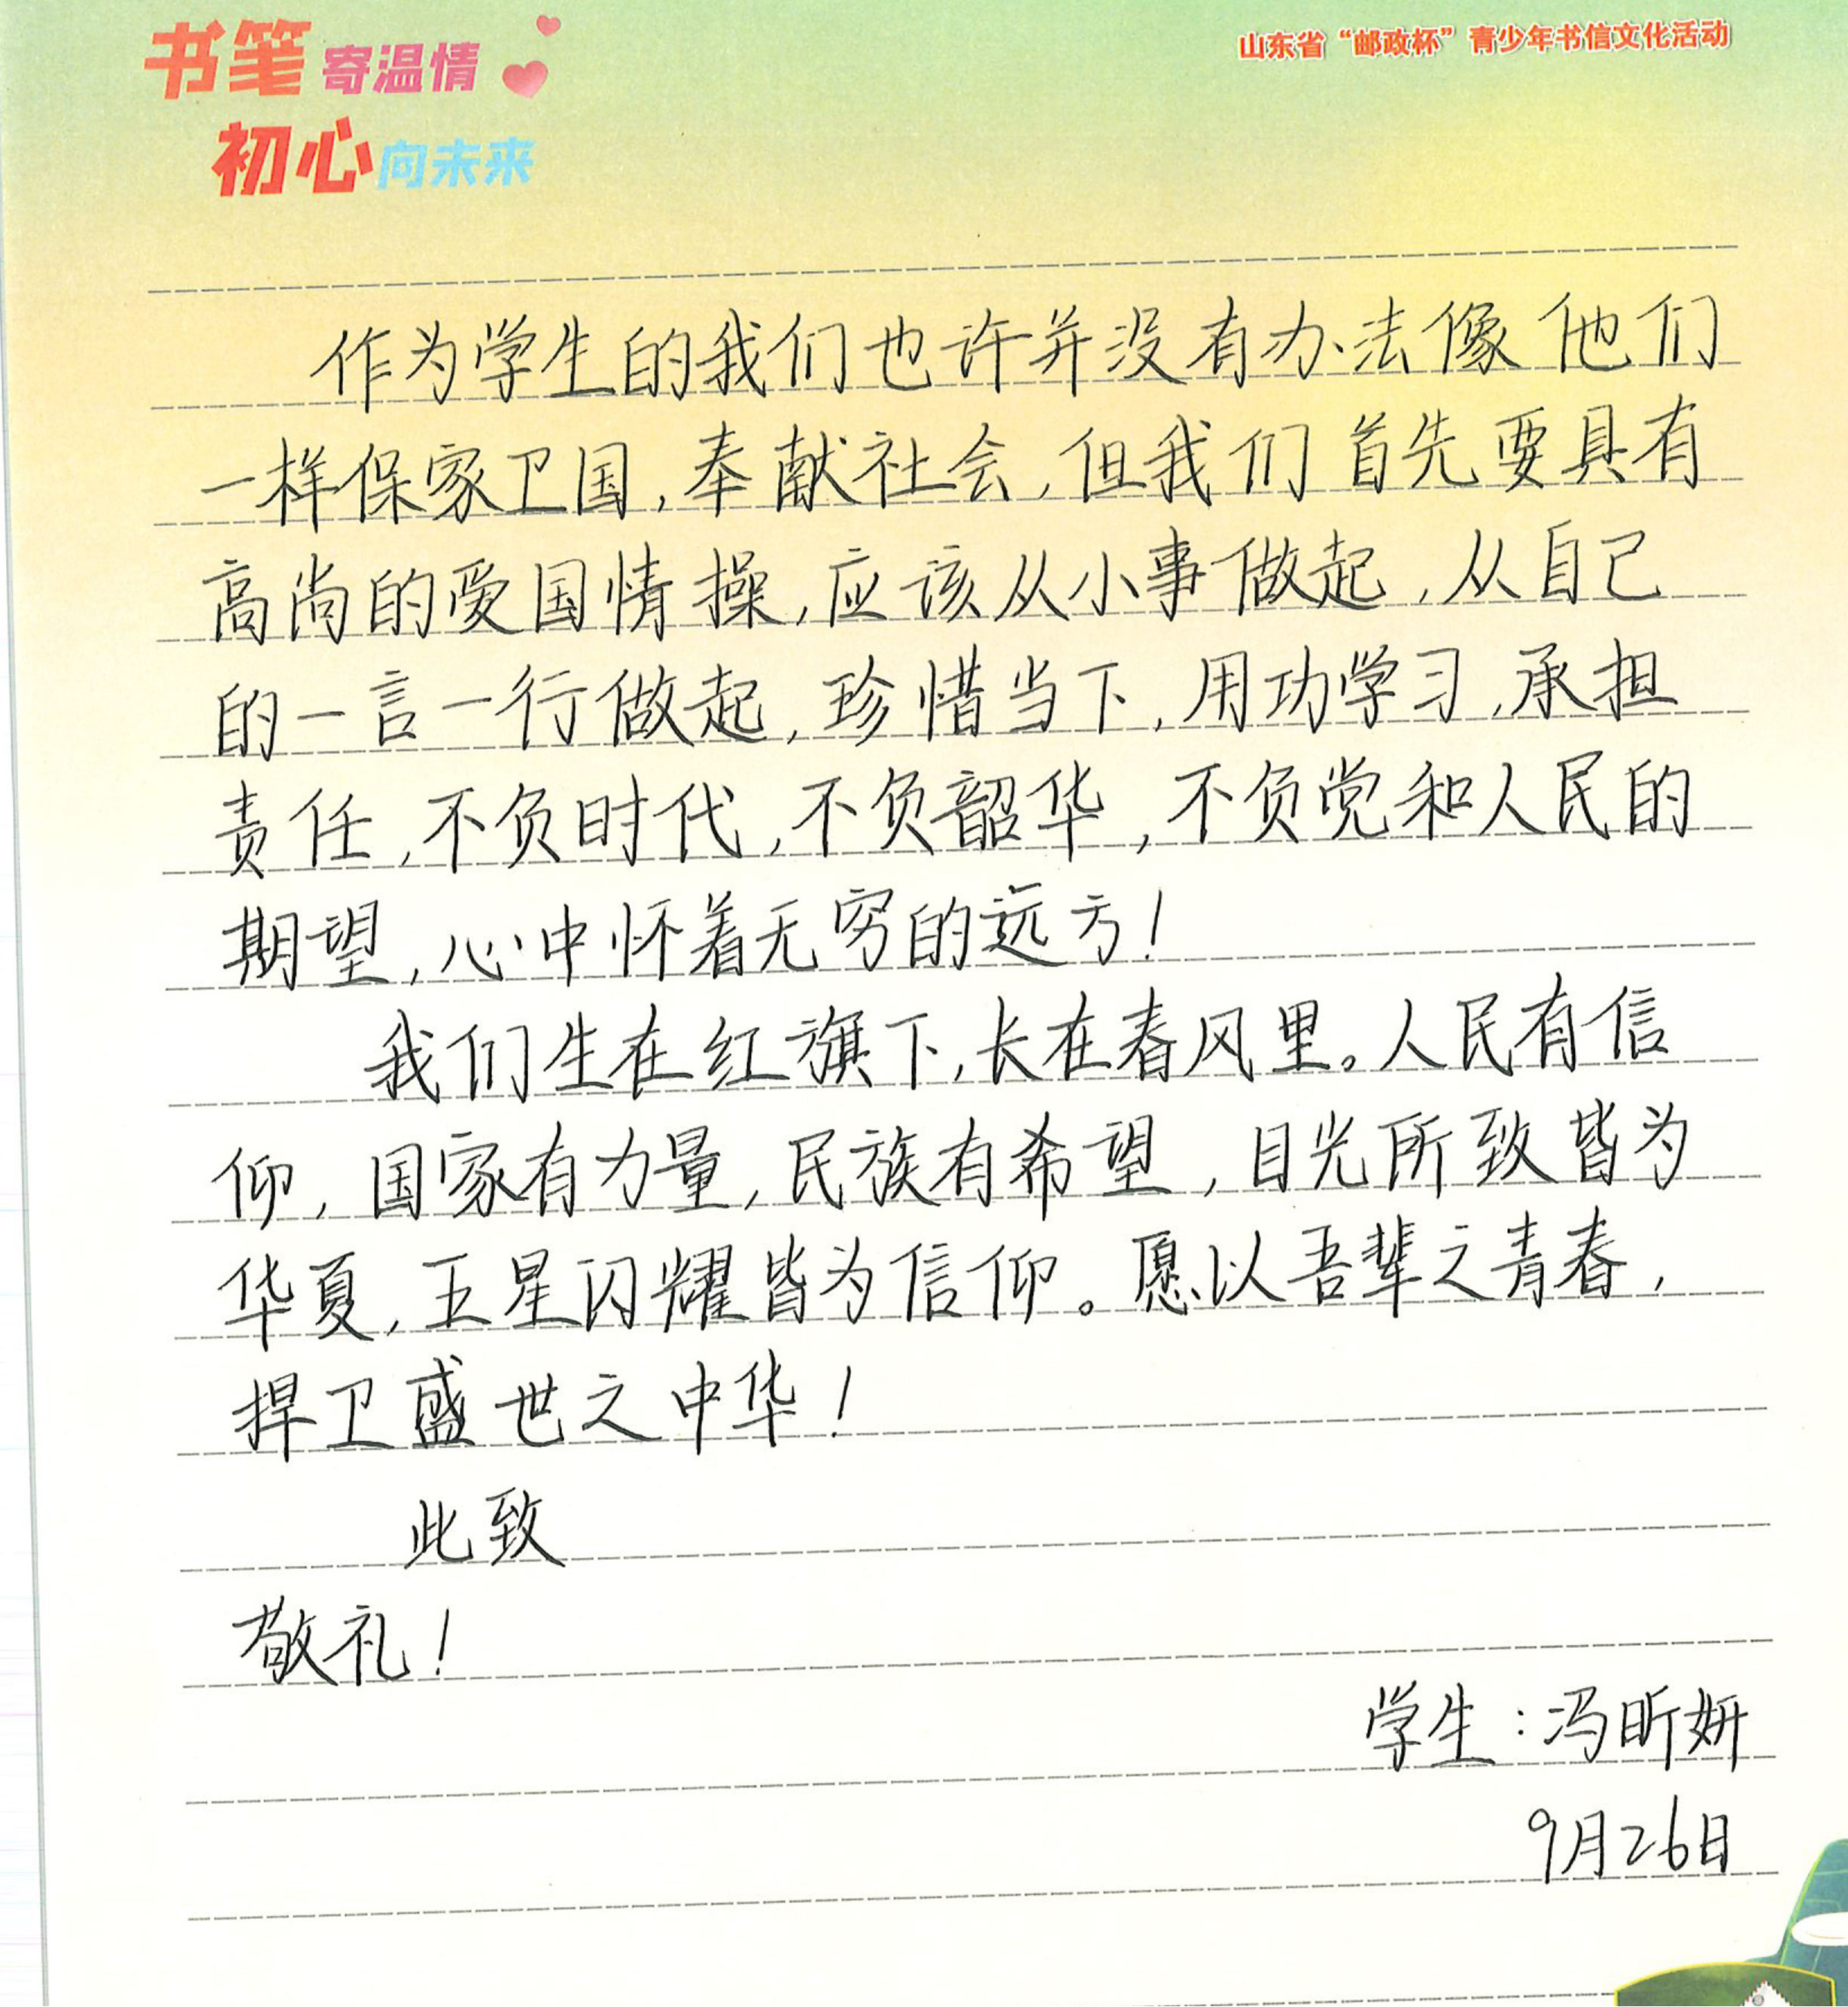 书笔寄温情
初心向未来
山东省“邮政杯”青少年书信文化活动
作为学生的我们也许并没有办法像他们
一样保家卫国,奉献社会,但我们首先要具有
高尚的爱国情操,应该从小事做起,从自己
的一言一行做起,珍惜当下,用功学习,承担
责任,不负时代,不负韶华,不负党和人民的
期望,心中怀着无穷的远方!
我们生在红旗下,长在春风里。人民有信
仰,国家有力量,民族有希望,目光所致皆为
华夏,五星闪耀皆为信仰。愿以吾辈之青春,
捍卫盛世之中华!
此致
敬礼!
学生:冯昕妍
9月26日